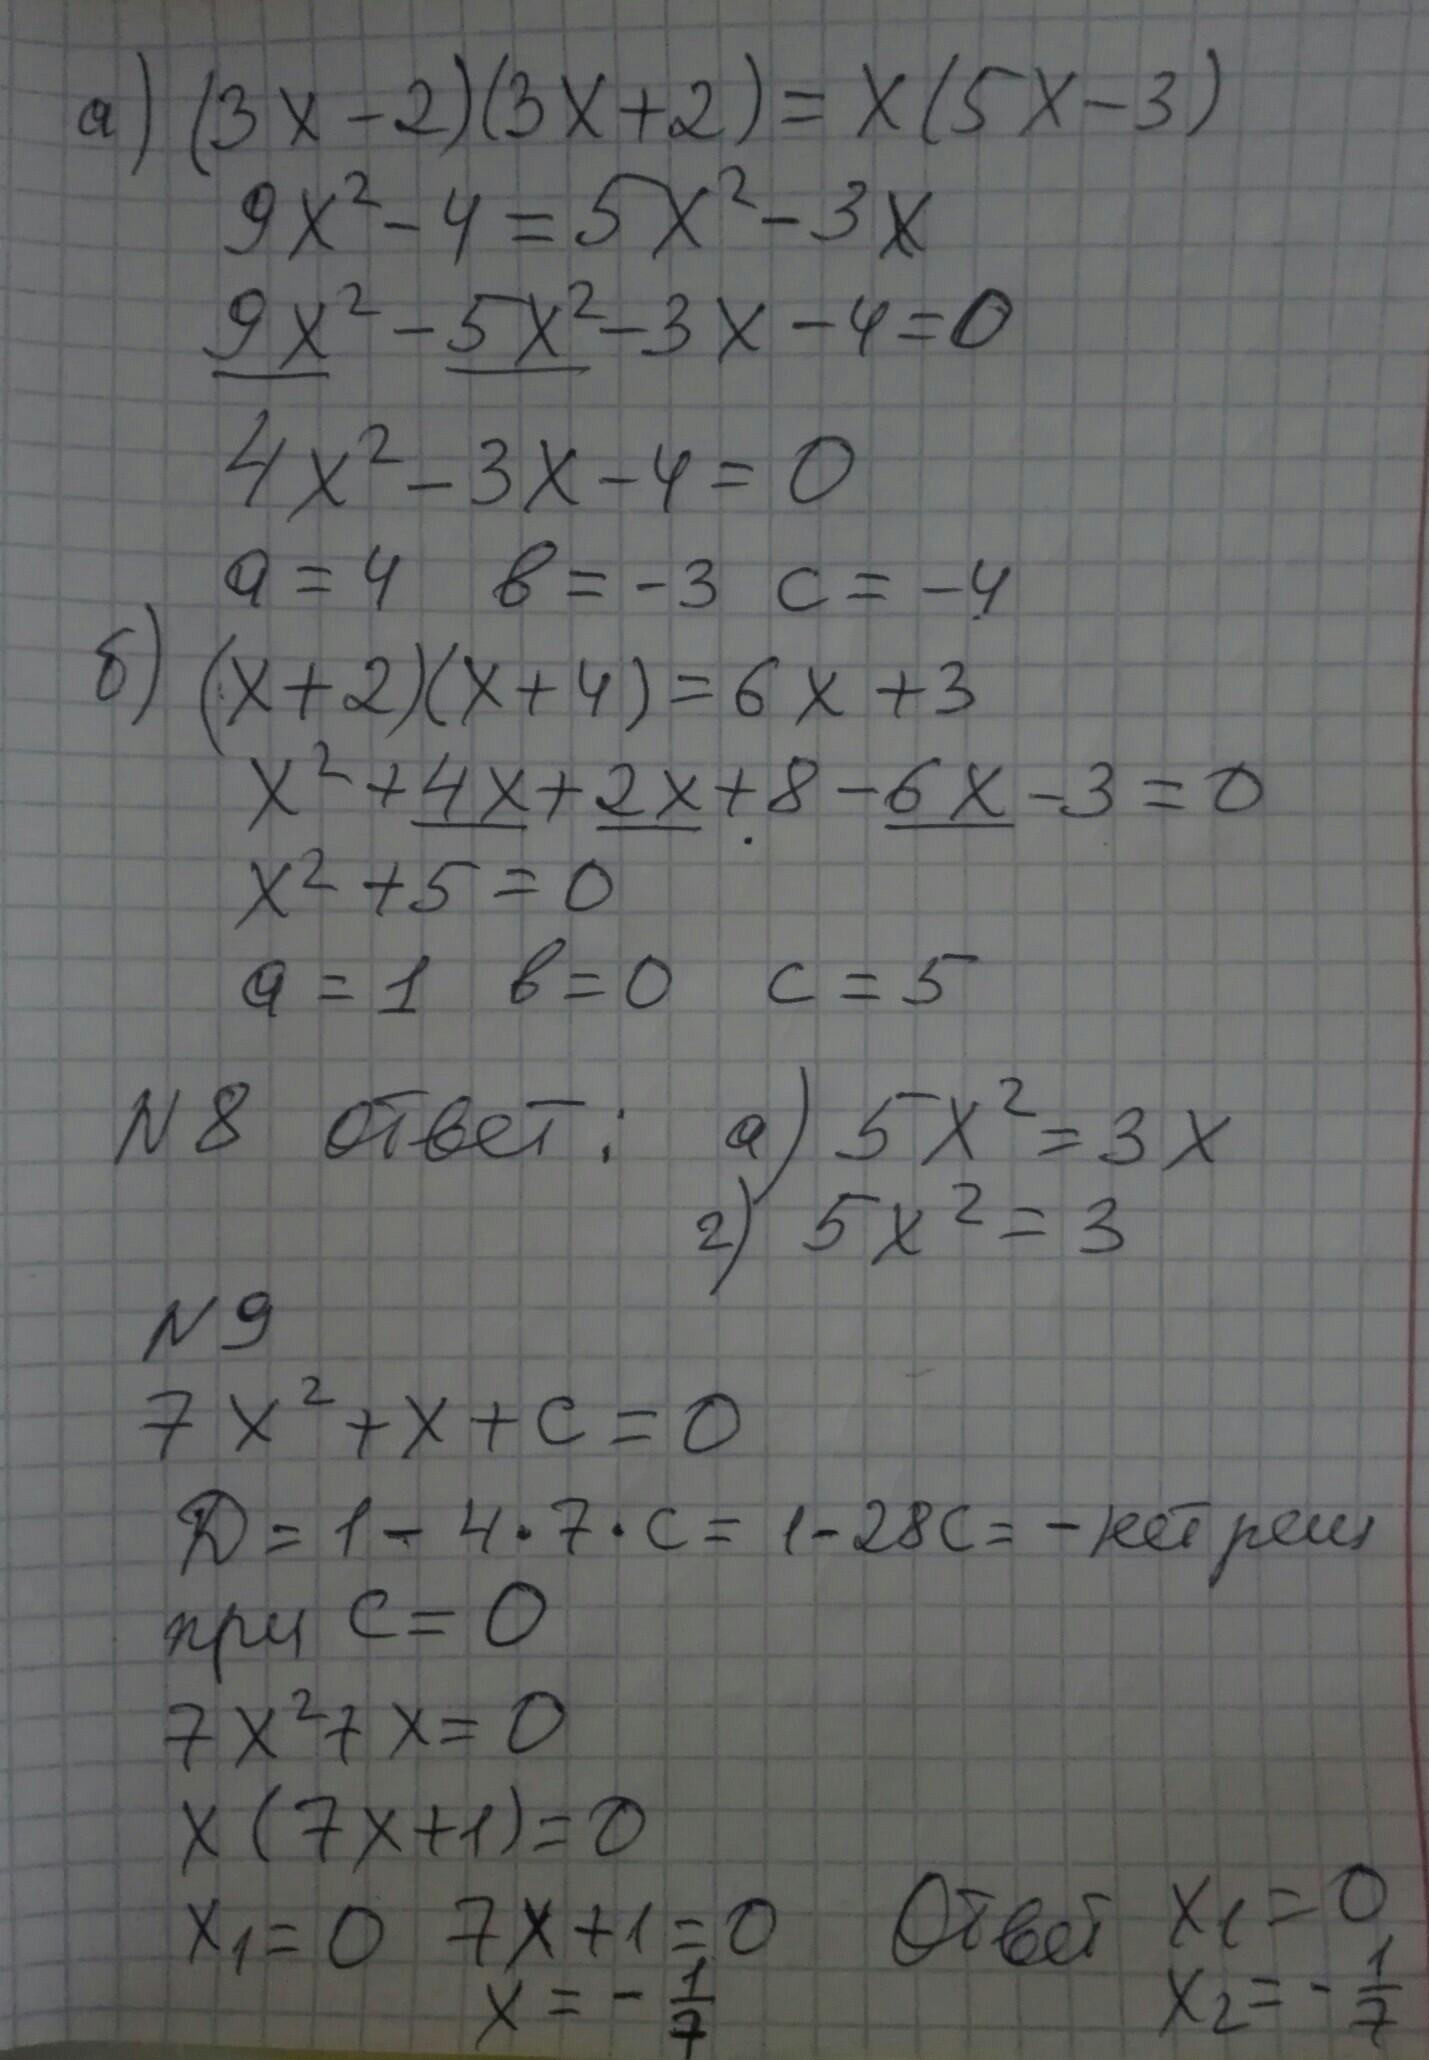 а) (3x-2)(3x+2)=x(5x-3)
9x²-4=5x²-3x
9x²-5x²-3x-4=0
4x²-3x-4=0
a=4 в=-3 c=-4
б) (x+2)(x+4)=6x+3
x²+4x+2x+8-6x-3=0
x²+5=0
a=1 в=0 c=5
N8 ответ: а) 5x²=3x
г) 5x²=3
N9
7x²+x+c=0
D=1-4·7·c=1-28c=-нет реш
при c=0
7x²7x=0
x(7x+1)=0
x₁=0 7x+1=0 Ответ x₁=0
x=-1/7 x₂=-1/7